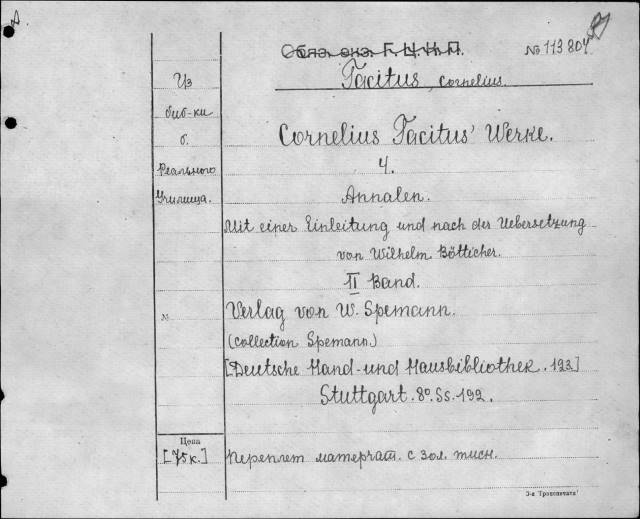 Обяз. экз. Г. Ц. К. П.
№ 113804
Tacitus, Cornelius.
Из
биб-ки
б.
Реального
Училища.
Cornelius Tacitus' Werke.
4.
Annalen.
Mit einer Einleitung und nach der Uebersetzung
von Wilhelm Bötticher.
II Band.
№
Verlag von W. Spemann.
(Collection Spemann.)
[Deutsche Hand-und Hausbibliothek. 123]
Stuttgart. 8º. Ss. 192.
Цена
[75 к.]
Переплет матерчат. с зол. тисн.